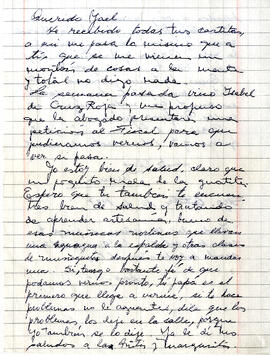 Querido Yael
He recibido todas tus cartitas,
a mi me pasa lo mismo que a
ti, que se me vienen un
montón de cosas a la mente
y total no digo nada.
La semana pasada vino Isabel
de Cruz Roja y me propuso
que la abogado presentara una
petición al Fiscal para que
pudieramos vernos, vamos a
ver si pasa.
Yo estoy bien de salud, claro que
un poquito
Espero que tu tambien te encuen
tres bien de salud y tratando
de aprender artesanía, bueno de
esas muñecas nortinas que llevan
una guagua a la espalda y otras clases
de muñequitos despues te voy a mandar
una. Si, tengo bastante fé de que
podamos vernos pronto, tu papá es el
primero que llega a verme, si te hace
problemas no le aguantes, dile que los
problemas los deje en la calle, porque
yo tambien se lo dije. Ya se di mis
saludos a las